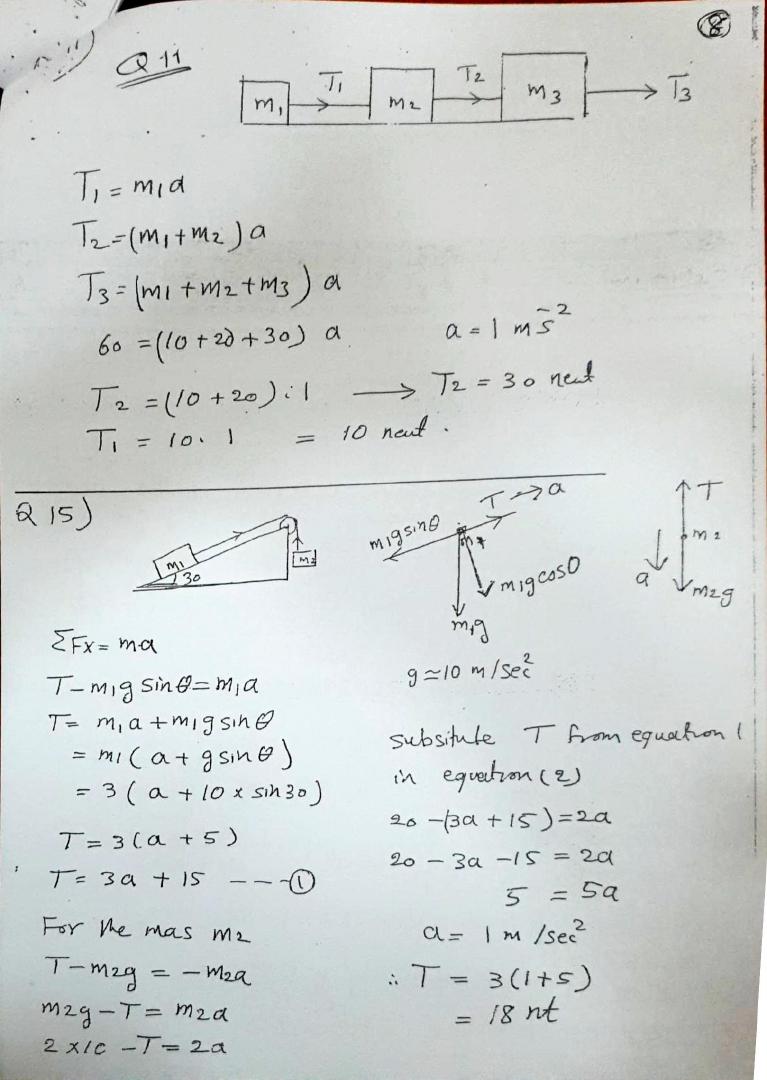 8
Q 11
m1 T1 m2 T2 m3 T3
T1 = m1a
T2 = (m1 + m2) a
T3 = (m1 + m2 + m3) a
60 = (10 + 20 + 30) a a = 1 ms⁻²
T2 = (10 + 20) . 1 → T2 = 30 neut
T1 = 10 . 1 = 10 neut .
Q 15)
m1 30 m2
m1g sinθ T → a
m1g cosθ
m1g
T
m2
a
m2g
g ≃ 10 m/sec²
ΣFx = ma
T - m1g sinθ = m1a
T = m1a + m1g sinθ
= m1 (a + g sinθ)
= 3 (a + 10 x sin30)
T = 3(a + 5)
T = 3a + 15 --- ①
For the mas m2
T - m2g = - m2a
m2g - T = m2a
2 x 10 - T = 2a
subsitute T from equation 1
in equation (2)
20 - (3a + 15) = 2a
20 - 3a - 15 = 2a
5 = 5a
a = 1 m/sec²
∴ T = 3(1+5)
= 18 nt